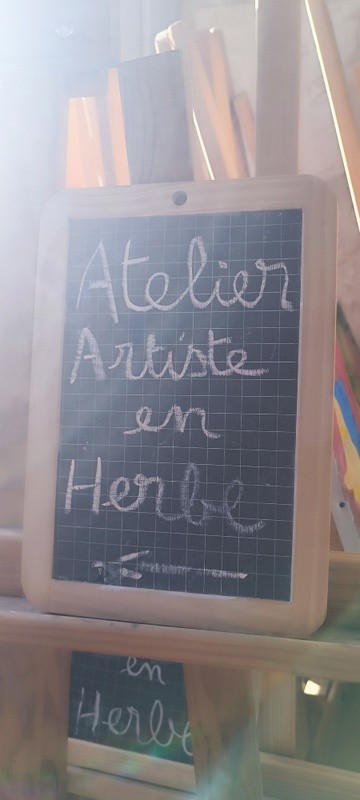 Atelier
Artiste
en
Herbe
←
en
Herbe